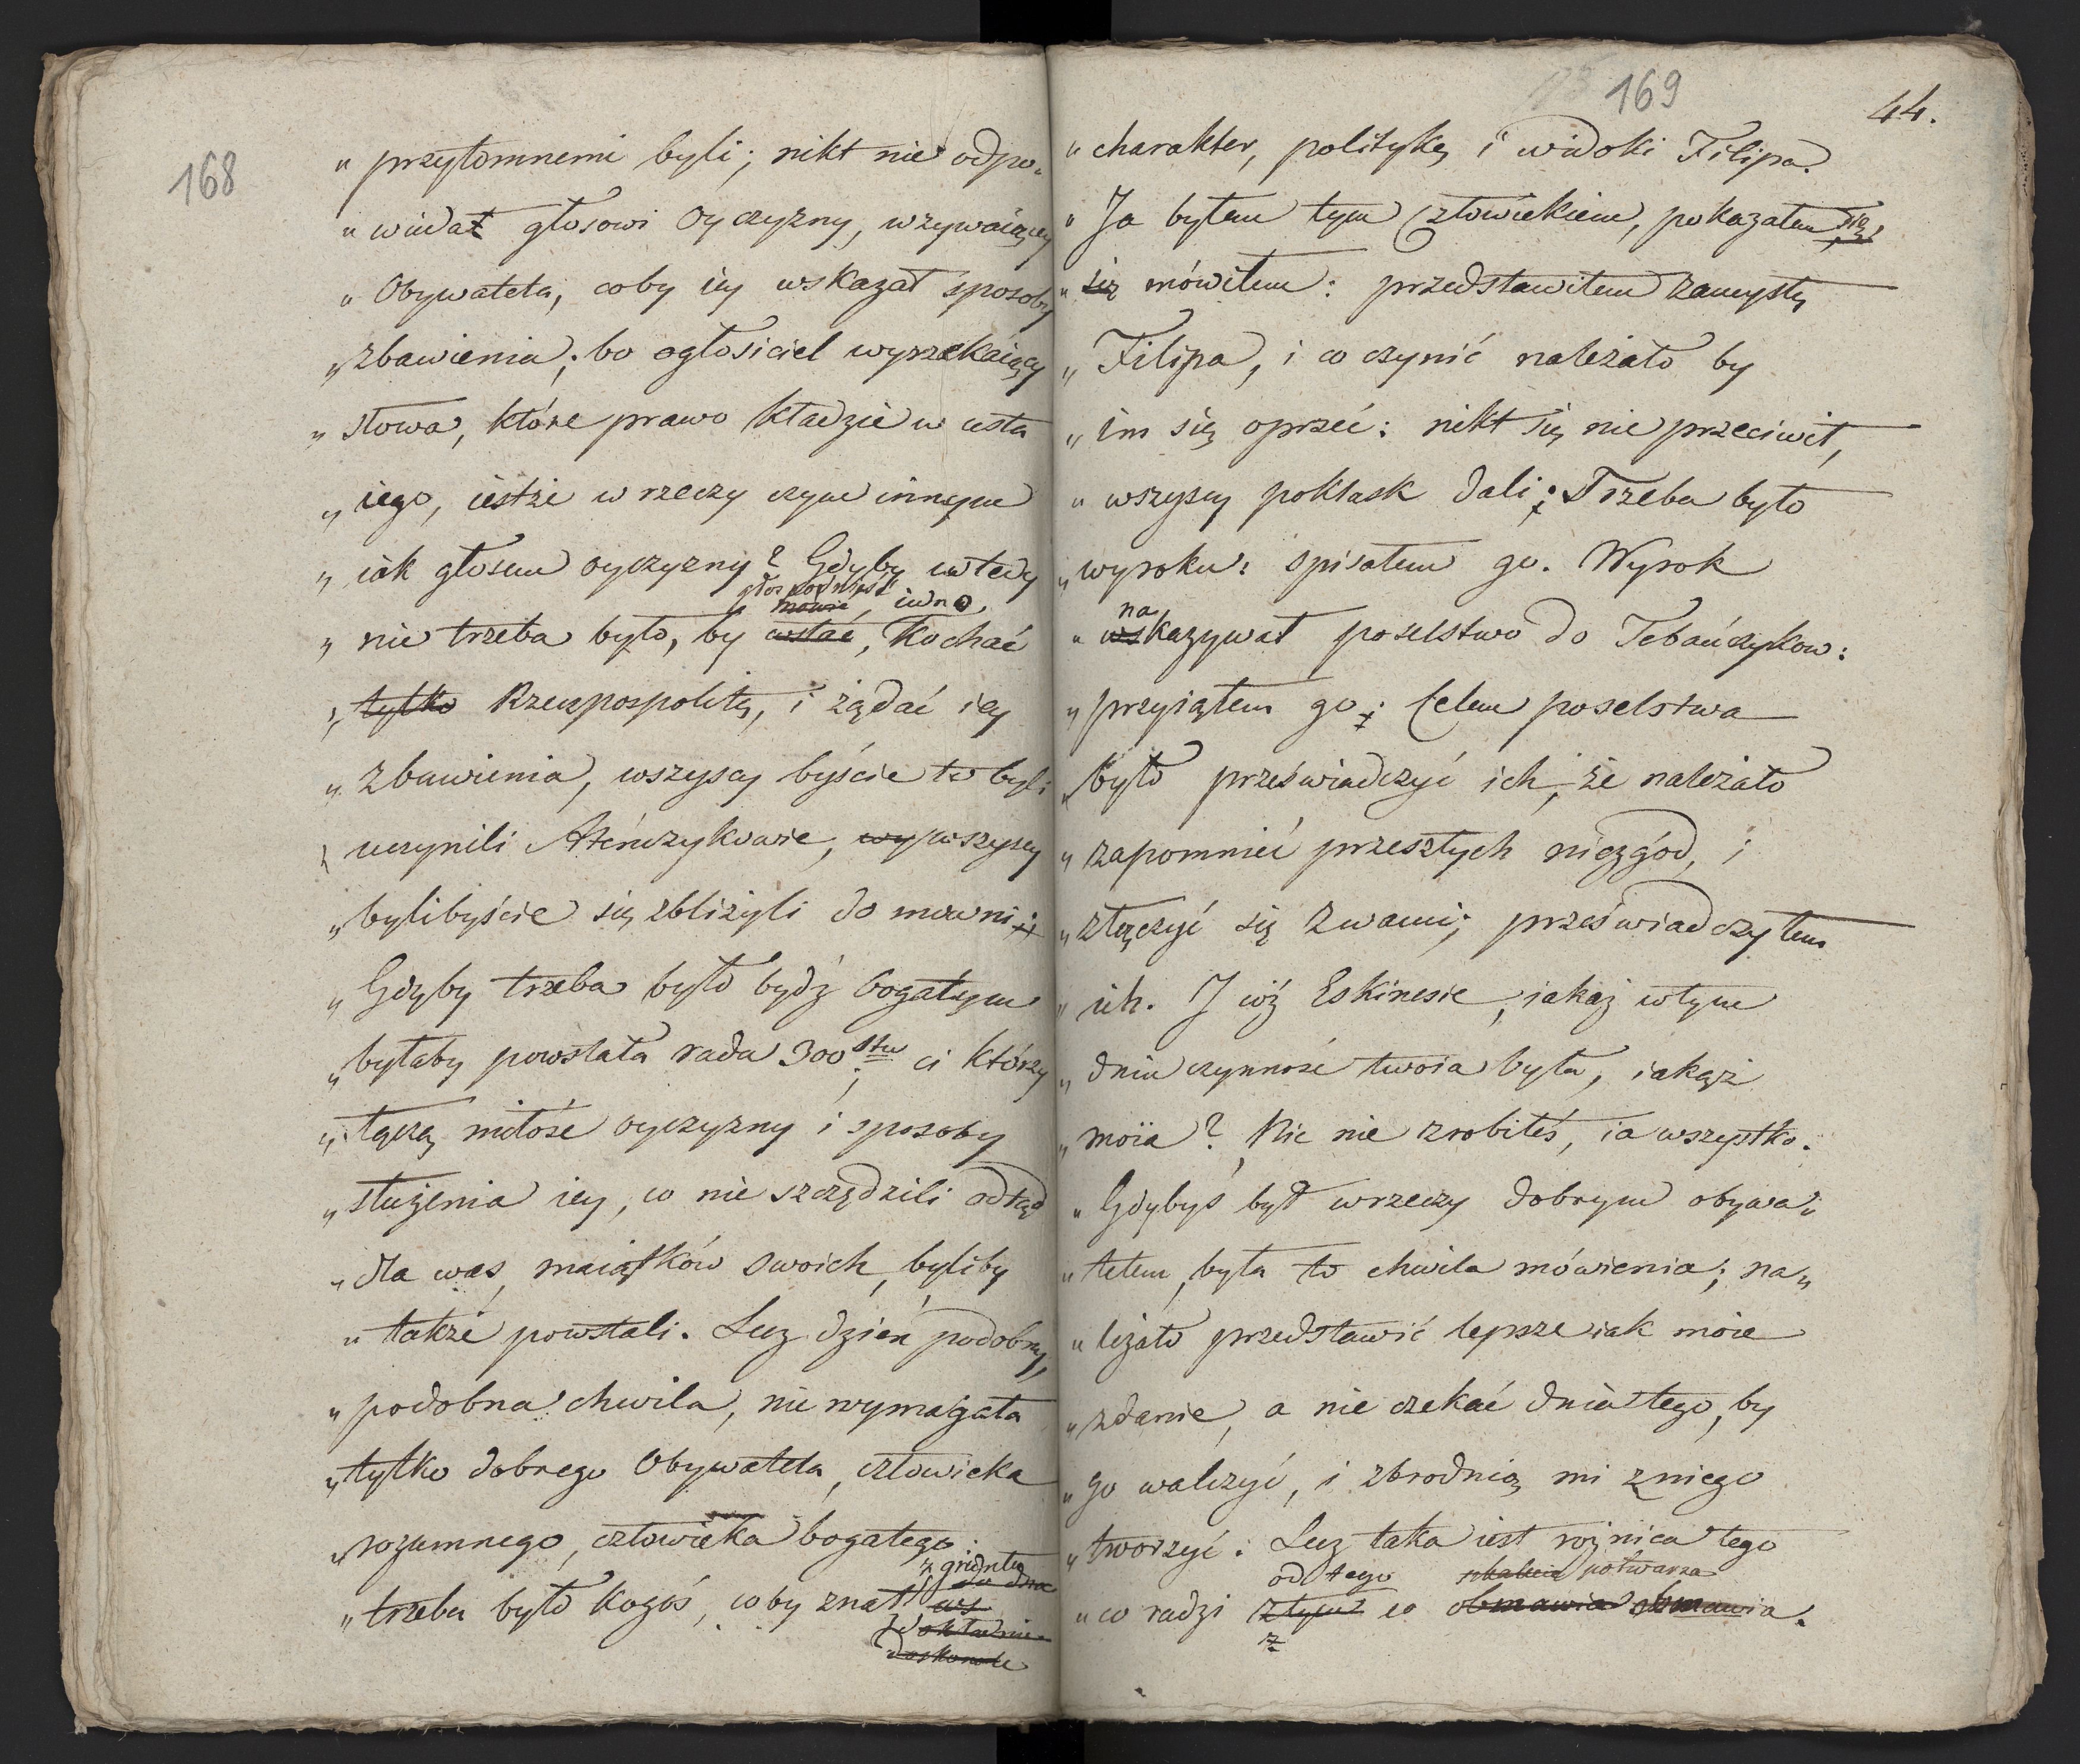 168
„ przytomnemi byli; nikt nie odpo-
„ wiedał głosowi Oyczyzny, wzywaiącey
„ Obywatela, coby iey wskazał sposoby
„ zbawienia; bo ogłosiciel wyrzekaiący
„ słowa, które prawo kładzie w usta
„ iego, iestże w rzeczy czym innym
„ iak głosem oyczyzny? Gdyby wtedy
głos podnieść
mówić, iuno
„ nie trzeba było, by wstać, kochać
„ tylko Rzeczpospolitę, i żądać iey
„ zbawienia, wszyscy byście to byli
„ uczynili Ateńczykowie, wy wszyscy
„ bylibyście się zbliżyli do mowni;
„ Gdyby trzeba było bydź bogatym
„ byłaby powstała rada 300stu; ci którzy
„ łączą miłość oyczyzny i sposoby
„ służenia iey, co nie szczędzili odtąd
„ dla was, maiątków swoich, byliby
„ także powstali. Lecz dzień podobny,
„ podobna chwila, nie wymagała
„ tylko dobrego Obywatela, człowieka
„ rozumnego, człowieka bogatego:
z gruntu
do dna
„ trzeba było kogoś, coby znał ws
dokładnie
doskonale
169
44.
„ charakter, politykę i widoki Filipa.
„ Ja byłem tym człowiekiem, pokazałem się,
„ się mówiłem: przedstawiłem zamysły
„ Filipa, i co czynić należało by
„ im się oprzeć: nikt się nie przeciwił,
„ wszyscy poklask dali; Trzeba było
„ wyroku: spisałem go. Wyrok
na
„ wskazywał poselstwo do Tebańczykow:
„ przyiąłem go; Celem poselstwa
„ było przeświadczyć ich, że należało
„ zapomnieć przeszłych niezgód, i
„ złączyć się z wami; przeświadczyłem
„ ich. I cóż Eskinesie, iakaż w tym
„ dniu czynność twoia była, iakąż
„ moia? Nic nie zrobiłeś, ia wszystko.
„ Gdybyś był w rzeczy dobrym obywa„
„ telem, była to chwila mówienia; na„
„ leżało przedstawić lepsze iak moie
„ zdanie, a nie czekać dnia tego, by
„ go walczyć, i zbrodnię mi z niego
„ tworzyć: Lecz taka iest roznica tego
od tego potwarza
„ co radzi z tym co obmawia obmawia.
z